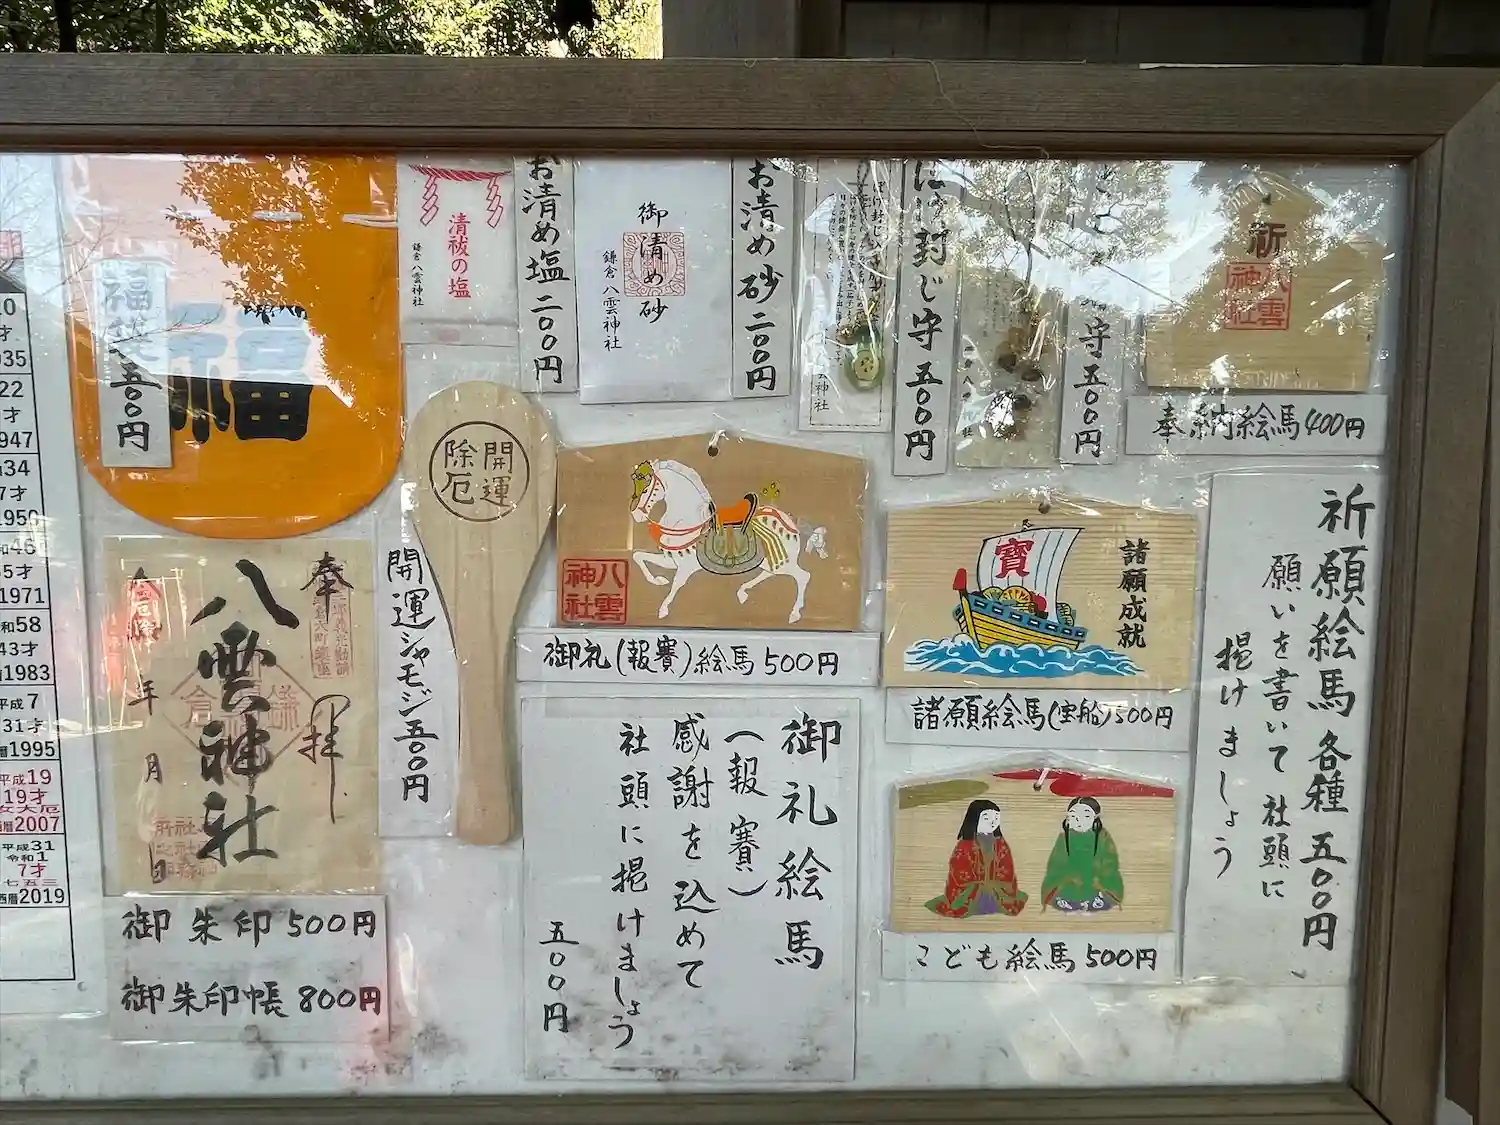 福笑
五〇〇円
福
清祓の塩
鎌倉 八雲神社
お清め塩 二〇〇円
御清め砂
鎌倉 八雲神社
お清め砂 二〇〇円
ぼけ封じ守 五〇〇円
守 五〇〇円
祈
八雲神社
奉納絵馬400円
開運除厄
開運シャモジ五〇〇円
八雲神社
御礼(報賽)絵馬500円
諸願成就
寶
諸願絵馬(宝船)500円
こども絵馬500円
祈願絵馬 各種 五〇〇円
願いを書いて 社頭に
掲けましょう
御礼絵馬
(報賽)
感謝を込めて
社頭に掲けましょう
五〇〇円
奉拝
八雲神社
年 月 日
御朱印500円
御朱印帳 800円
10
才
1935
22
才
1947
34
7才
1950
和46
55才
1971
和58
43才
1983
平成 7
31才
西暦1995
平成19
19才
女大厄
西暦2007
平成31
令和1
7才
七五三
西暦2019